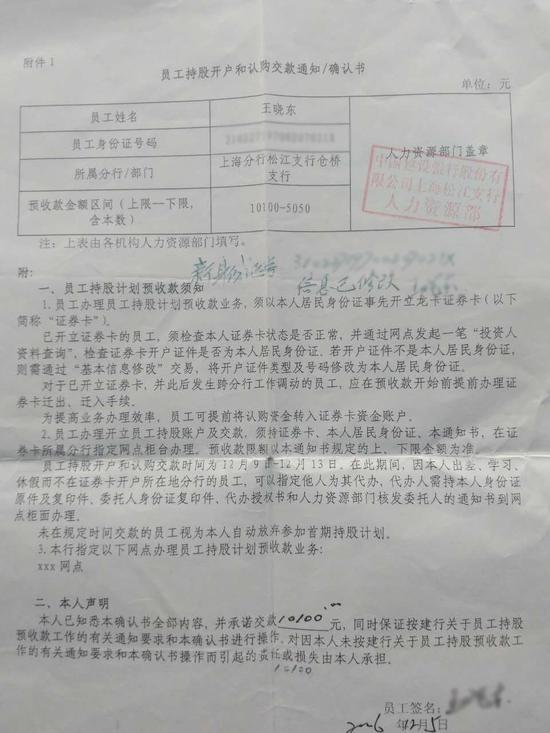 附件1
员工持股开户和认购交款通知/确认书
单位：元
员工姓名 王晓东
员工身份证号码
所属分行/部门 上海分行松江支行仓桥支行
预收款金额区间（上限一下限，含本数） 10100-5050
人力资源部门盖章
中国建设银行股份有
限公司上海松江支行
人力资源部
注：上表由各机构人力资源部门填写。
附：
信息已修改
一、员工持股计划预收款须知
1.员工办理员工持股计划预收款业务，须以本人居民身份证事先开立龙卡证券卡（以下
简称“证券卡”）。
已开立证券卡的员工，须检查本人证券卡状态是否正常，并通过网点发起一笔“投资人
资料查询”，检查证券卡开户证件是否为本人居民身份证。若开户证件不是本人居民身份证，
则需通过“基本信息修改”交易，将开户证件类型及号码修改为本人居民身份证。
对于已开立证券卡，并此后发生跨分行工作调动的员工，应在预收款开始前提前办理证
券卡迁出、迁入手续。
为提高业务办理效率，员工可提前将认购资金转入证券卡资金账户。
2.员工办理开立员工持股账户及交款，须持证券卡、本人居民身份证、本通知书，在证
券卡所属分行指定网点柜台办理。预收款限额以本通知书规定的上、下限金额为准。
员工持股开户和认购交款时间为12月9日-12月13日。在此期间，因本人出差、学习、
休假而不在证券卡开户所在地分行的员工，可以指定他人为其代办，代办人需持本人身份证
原件及复印件、委托人身份证复印件、代办授权书和人力资源部门核发委托人的通知书到网
点柜面办理。
未在规定时间交款的员工视为本人自动放弃参加首期持股计划。
3.本行指定以下网点办理员工持股计划预收款业务：
xxx 网点
二、本人声明
本人已知悉本确认书全部内容，并承诺交款10100元，同时保证按建行关于员工持股
预收款工作的有关通知要求和本确认书进行操作。对因本人未按建行关于员工持股预收款工
作的有关通知要求和本确认书操作而引起的责任或损失由本人承担。
10100
员工签名：
2006 年12月5日